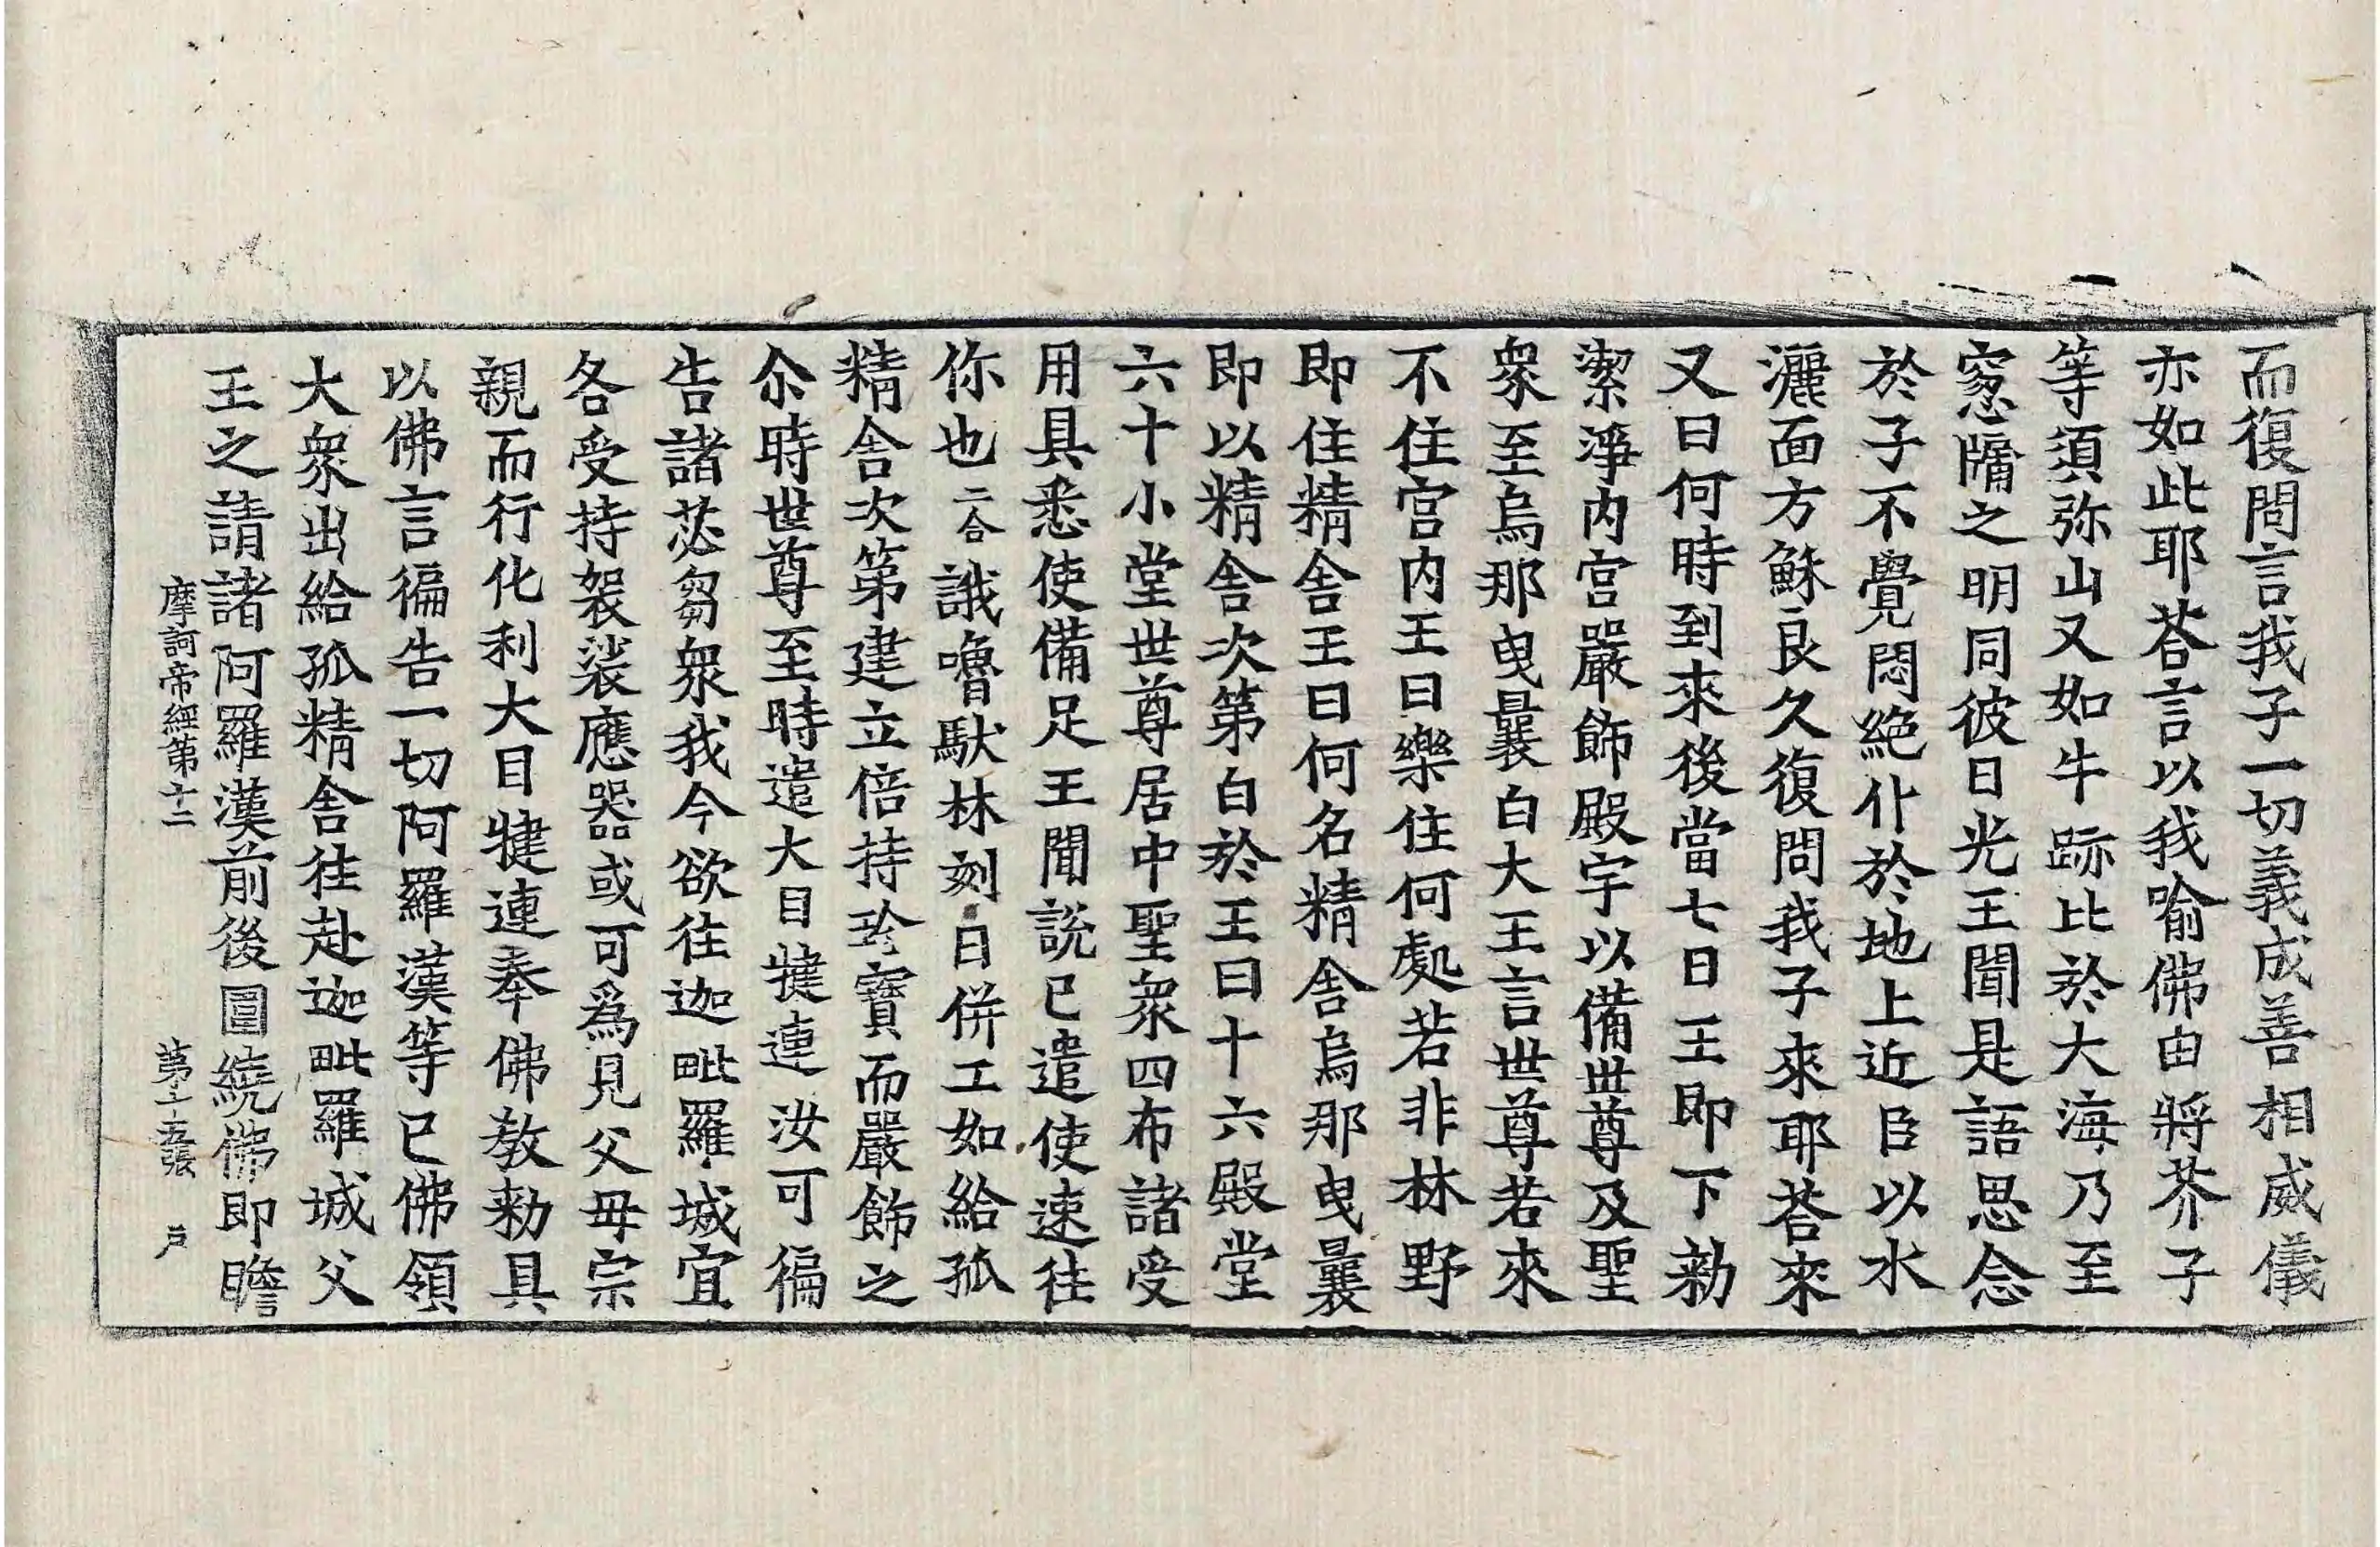 而復問言我子一切義成善相威儀
亦如此耶荅言以我喻佛由將芥子
等須弥山又如牛跡比於大海乃至
窓牖之明同彼日光王聞是語思念
於子不覺悶絶仆於地上近臣以水
灑面方穌良久復問我子來耶荅來
又曰何時到來後當七日王即下勑
潔淨内宫嚴飾殿宇以備世尊及聖
衆至烏那曳曩白大王言世尊若來
不住宫内王曰樂住何處若非林野
即住精舎王曰何名精舎烏那曳曩
即以精舎次第白於王曰十六殿堂
六十小堂世尊居中聖衆四布諸受
用具悉使備足王聞說已遣使速往
你也二合誐嚕馱林刻日併工如給孤
精舎次第建立倍持珍寶而嚴飾之
尒時世尊至時遣大目犍連汝可徧
告諸苾芻衆我今欲往迦毗羅城宜
各受持袈裟應器或可爲見父母宗
親而行化利大目犍連奉佛敎勑具
以佛言徧告一切阿羅漢等已佛領
大衆出給孤精舎往赴迦毗羅城父
王之請諸阿羅漢前後圍繞佛即瞻
摩訶帝經第十二 第十五張 戶